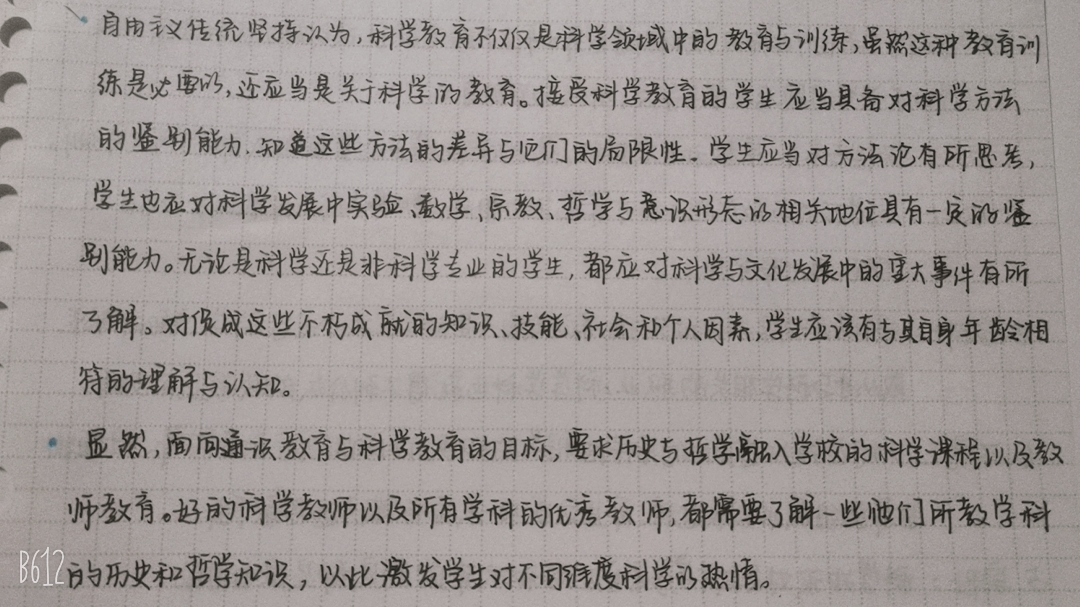 自由主义传统坚持认为,科学教育不仅仅是科学领域中的教育与训练,虽然这种教育训
练是必要的,还应当是关于科学的教育。接受科学教育的学生应当具备对科学方法
的鉴别能力.知道这些方法的差异与它们的局限性。学生应当对方法论有所思考,
学生也应对科学发展中实验、数学、宗教、哲学与意识形态的相关地位具有一定的鉴
别能力。无论是科学还是非科学专业的学生,都应对科学与文化发展中的重大事件有所
了解。对促成这些不朽成就的知识、技能、社会和个人因素,学生应该有与其自身年龄相
符的理解与认知。
显然,面向通识教育与科学教育的目标,要求历史与哲学融入学校的科学课程以及教
师教育。好的科学教师以及所有学科的优秀教师,都需要了解一些他们所教学科
的历史和哲学知识,以此激发学生对不同维度科学的热情。
B612